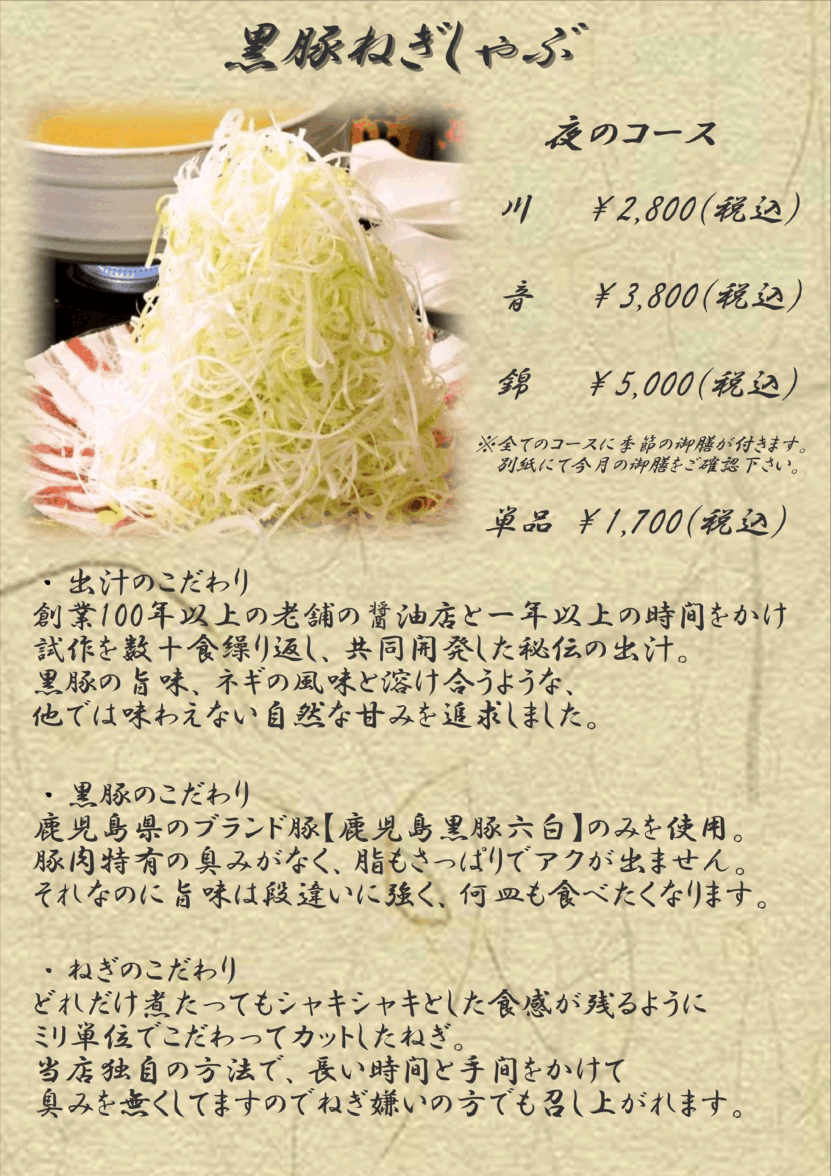 黒豚ねぎしゃぶ
夜のコース
川 ¥2,800(税込)
音 ¥3,800(税込)
錦 ¥5,000(税込)
※全てのコースに季節の御膳が付きます。
別紙にて今月の御膳をご確認下さい。
単品 ¥1,700(税込)
・出汁のこだわり
創業100年以上の老舗の醤油店と一年以上の時間をかけ
試作を数十食繰り返し、共同開発した秘伝の出汁。
黒豚の旨味、ネギの風味と溶け合うような、
他では味わえない自然な甘みを追求しました。
・黒豚のこだわり
鹿児島県のブランド豚【鹿児島黒豚六白】のみを使用。
豚肉特有の臭みがなく、脂もさっぱりでアクが出ません。
それなのに旨味は段違いに強く、何皿も食べたくなります。
・ねぎのこだわり
どれだけ煮たってもシャキシャキとした食感が残るように
ミリ単位でこだわってカットしたねぎ。
当店独自の方法で、長い時間と手間をかけて
臭みを無くしてますのでねぎ嫌いの方でも召し上がれます。